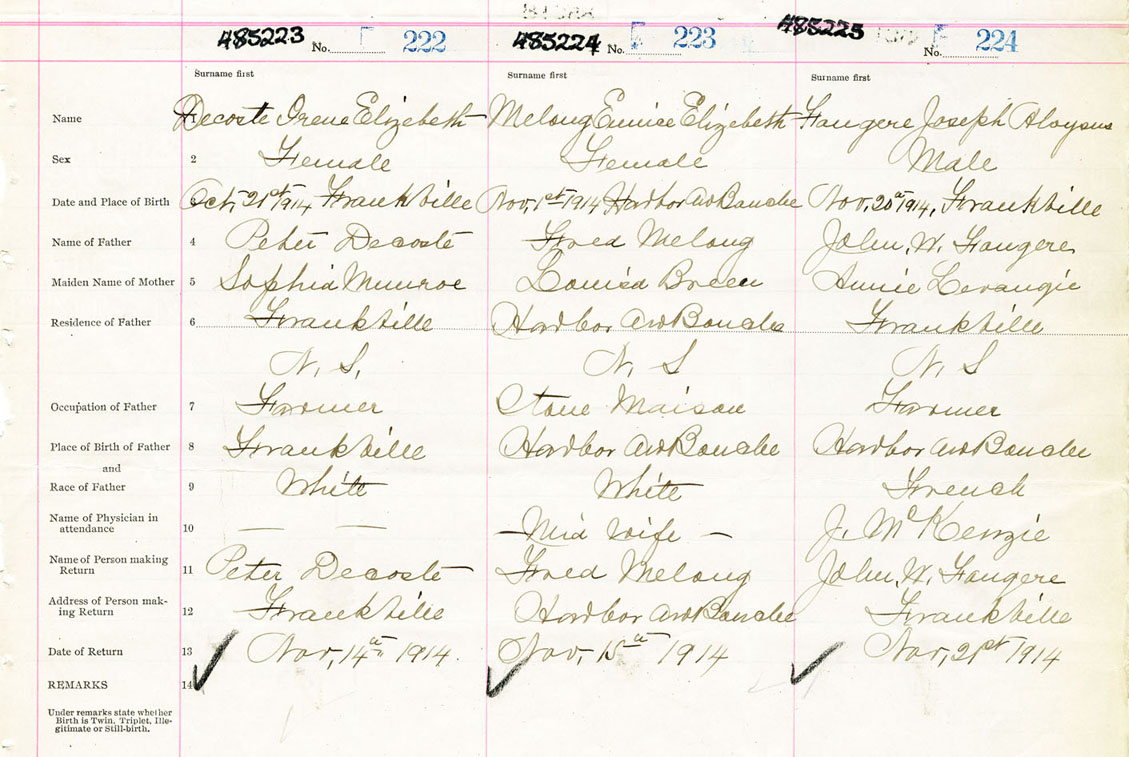 485223 No. 222 485224 No. 223 485225 No. 224
Surname first Surname first Surname first
Name 1 Decoste Irene Elizebeth Melong Eunice Elizebeth Fougere Joseph Aloysus
Sex 2 Female Female Male
Date and Place of Birth 3 Oct, 21st 1914 Frankville Nov, 1st 1914 Harbor Au Bouche Nov, 20th 1914, Frankville
Name of Father 4 Peter Decoste Fred Melong John, W. Fougere
Maiden Name of Mother 5 Sophia Munroe Louisa Breen Annie Levangie
Residence of Father 6 Frankville Harbor Au Bouche Frankville
N. S, N. S N. S
Occupation of Father 7 Farmer Stone Maison Farmer
Place of Birth of Father 8 Frankville Harbor Au Bouche Harbor Au Bouche
and
Race of Father 9 White White French
Name of Physician in
attendance 10 — — – Mid Wife – J. McKenzie
Name of Person making
Return 11 Peter Decoste Fred Melong John, W. Fougere
Address of Person mak-
ing Return 12 Frankville Harbor Au Bouche Frankville
Date of Return 13 Nov, 14th 1914. Nov, 15th 1914 Nov, 21st 1914
REMARKS 14
Under remarks state whether
Birth is Twin, Triplet, Ille-
gitimate or Still-birth.